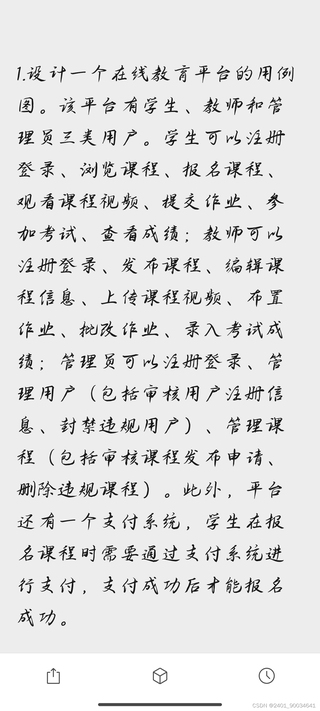 1.设计一个在线教育平台的用例
图。该平台有学生、教师和管
理员三类用户。学生可以注册
登录、浏览课程、报名课程、
观看课程视频、提交作业、参
加考试、查看成绩；教师可以
注册登录、发布课程、编辑课
程信息、上传课程视频、布置
作业、批改作业、录入考试成
绩；管理员可以注册登录、管
理用户（包括审核用户注册信
息、封禁违规用户）、管理课
程（包括审核课程发布申请、
删除违规课程）。此外，平台
还有一个支付系统，学生在报
名课程时需要通过支付系统进
行支付，支付成功后才能报名
成功。
CSDN @2401_90034041